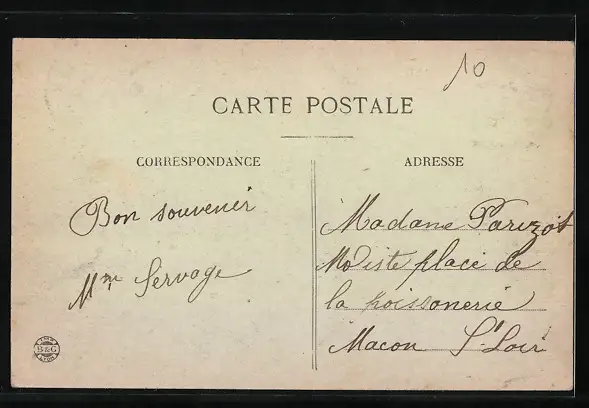 10
CARTE POSTALE
CORRESPONDANCE
ADRESSE
Bon souvenir
Mme Servage
Madame Parizot
Modiste place de
la poissonerie
Macon S-Loir
B&G
LYON